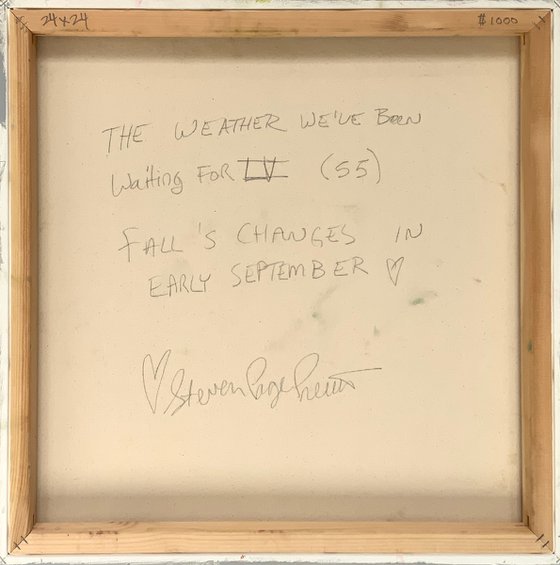 24x24
#1000
THE WEATHER WE'VE BEEN
Waiting FOR IV (55)
FALL'S CHANGES IN
EARLY SEPTEMBER ♡
♡ Steven Page Prewitt